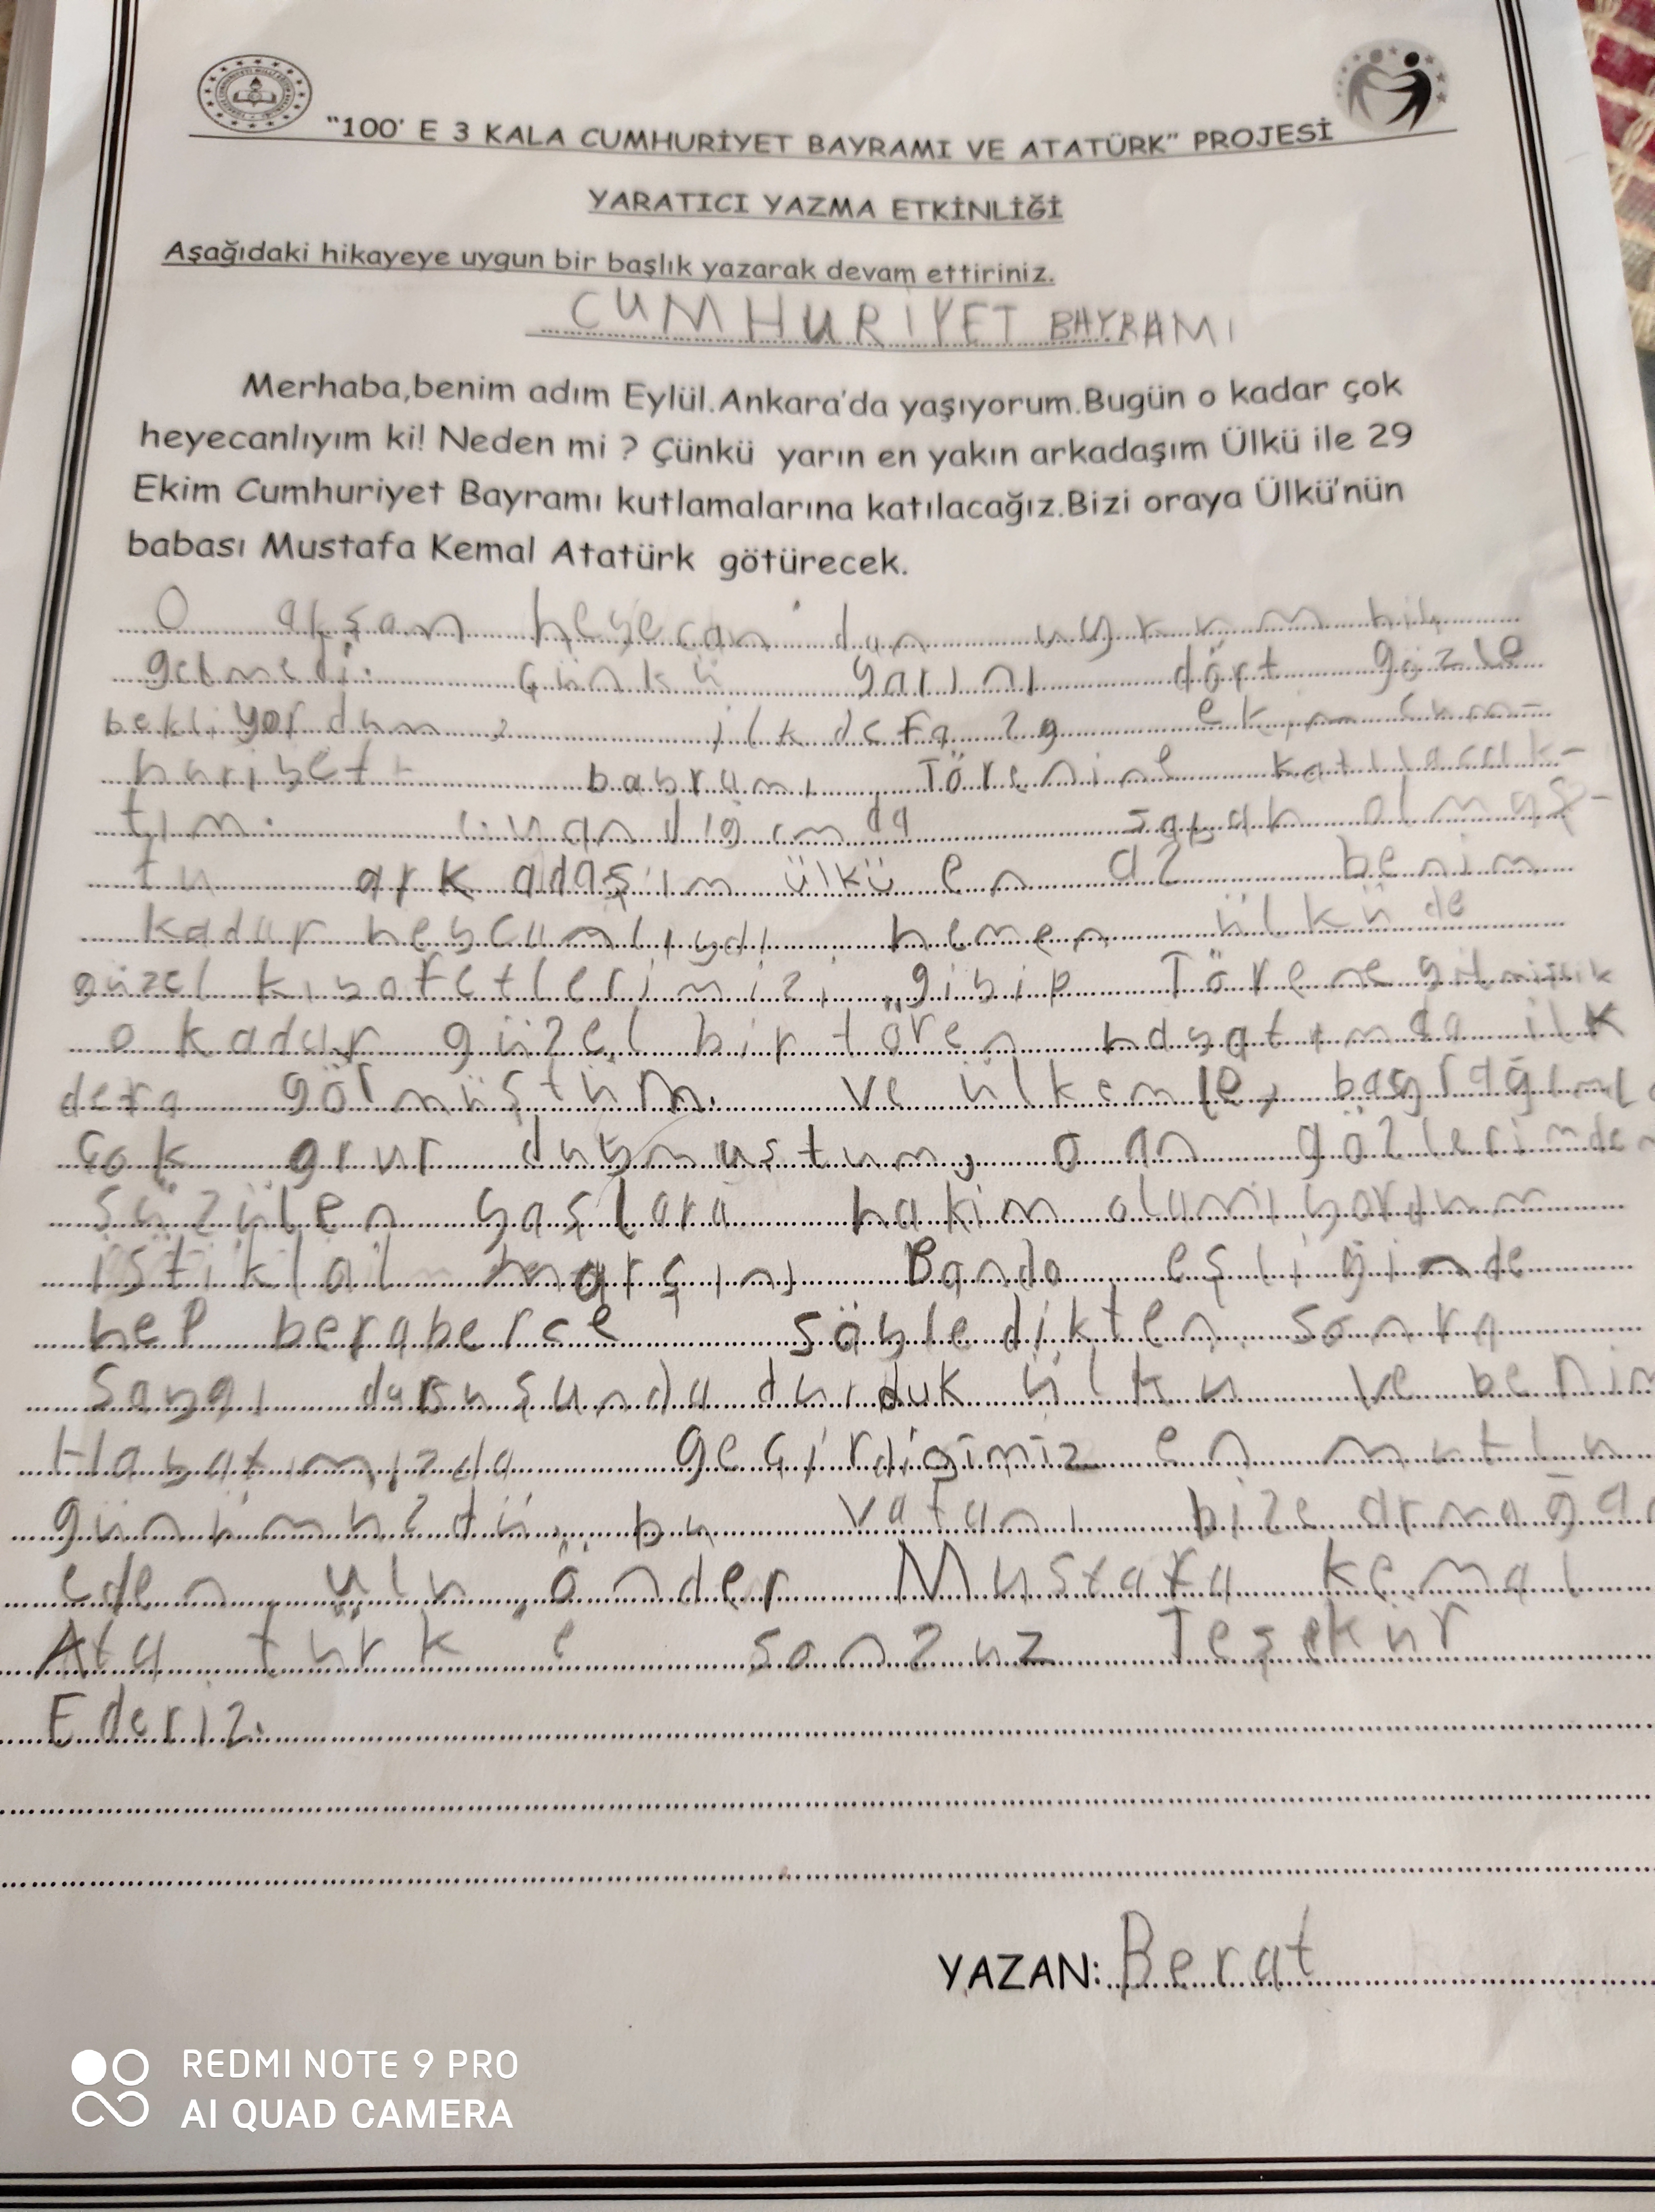 "100' E 3 KALA CUMHURİYET BAYRAMI VE ATATÜRK" PROJESİ
YARATICI YAZMA ETKİNLİĞİ
Aşağıdaki hikayeye uygun bir başlık yazarak devam ettiriniz.
CUMHURİYET BAYRAMI
Merhaba,benim adım Eylül.Ankara'da yaşıyorum.Bugün o kadar çok
heyecanlıyım ki! Neden mi ? Çünkü yarın en yakın arkadaşım Ülkü ile 29
Ekim Cumhuriyet Bayramı kutlamalarına katılacağız.Bizi oraya Ülkü'nün
babası Mustafa Kemal Atatürk götürecek.
O akşam heyecan dan uykum hiç
gelmedi. çünkü yarını dört gözle
bekliyordum ilk defa 29 ekim cum-
huriyet bayramı Törenine katılacak-
tım. uyandığımda sabah olmaş-
tu arkadaşım ülkü en az benim
kadar heycanlıydı hemen ülkü de
güzel kıyafetlerimizi giyip Törene gitmiştik
o kadar güzel bir tören hayatımda ilk
defa görmüştüm. ve ülkemle, bayrağımla
çok grur duymuştum, o an gözlerimden
süzülen yaşlara hakim olamıyordum
istiklal marşını Bando eşliğinde
hep beraberce söyledikten sonra
saygı duruşunda durduk ülkü ve benim
Hayatımızda geçirdiğimiz en mutlu
günümüzdü. bu vatanı bize armağan
eden ulu önder Mustafa kemal
Ata türk'e sonzuz Teşekür
Ederiz.
YAZAN: Berat
REDMI NOTE 9 PRO
AI QUAD CAMERA